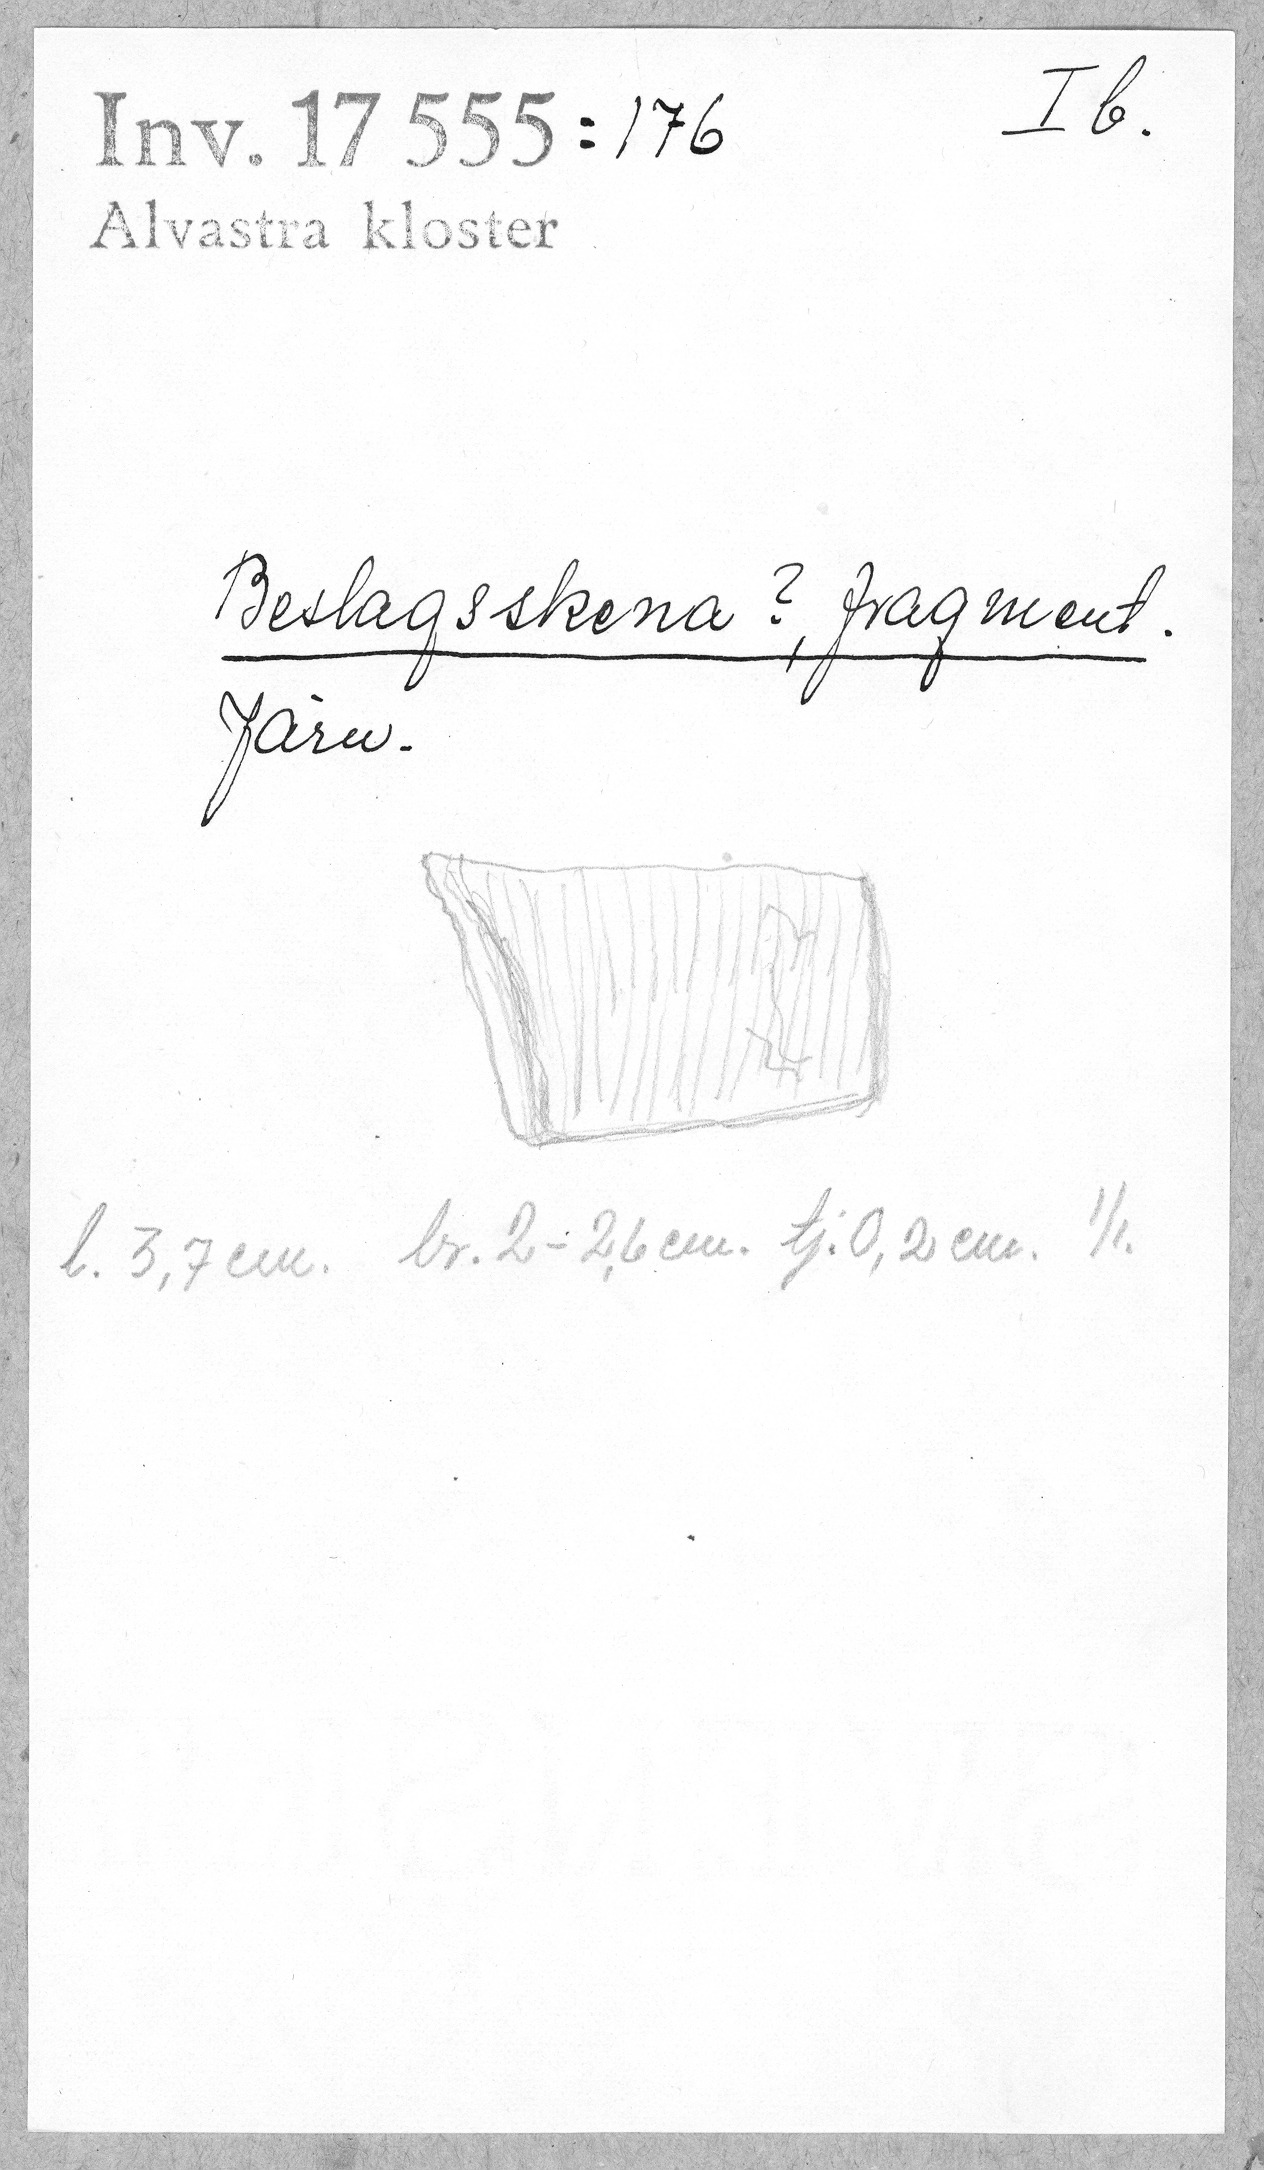 Inv. 17 555:176
I b.
Alvastra kloster
Beslagsskena?, fragment.
Järn.
l. 3,7 cm. br. 2-2,6 cm. tj. 0,2 cm. 1/1.